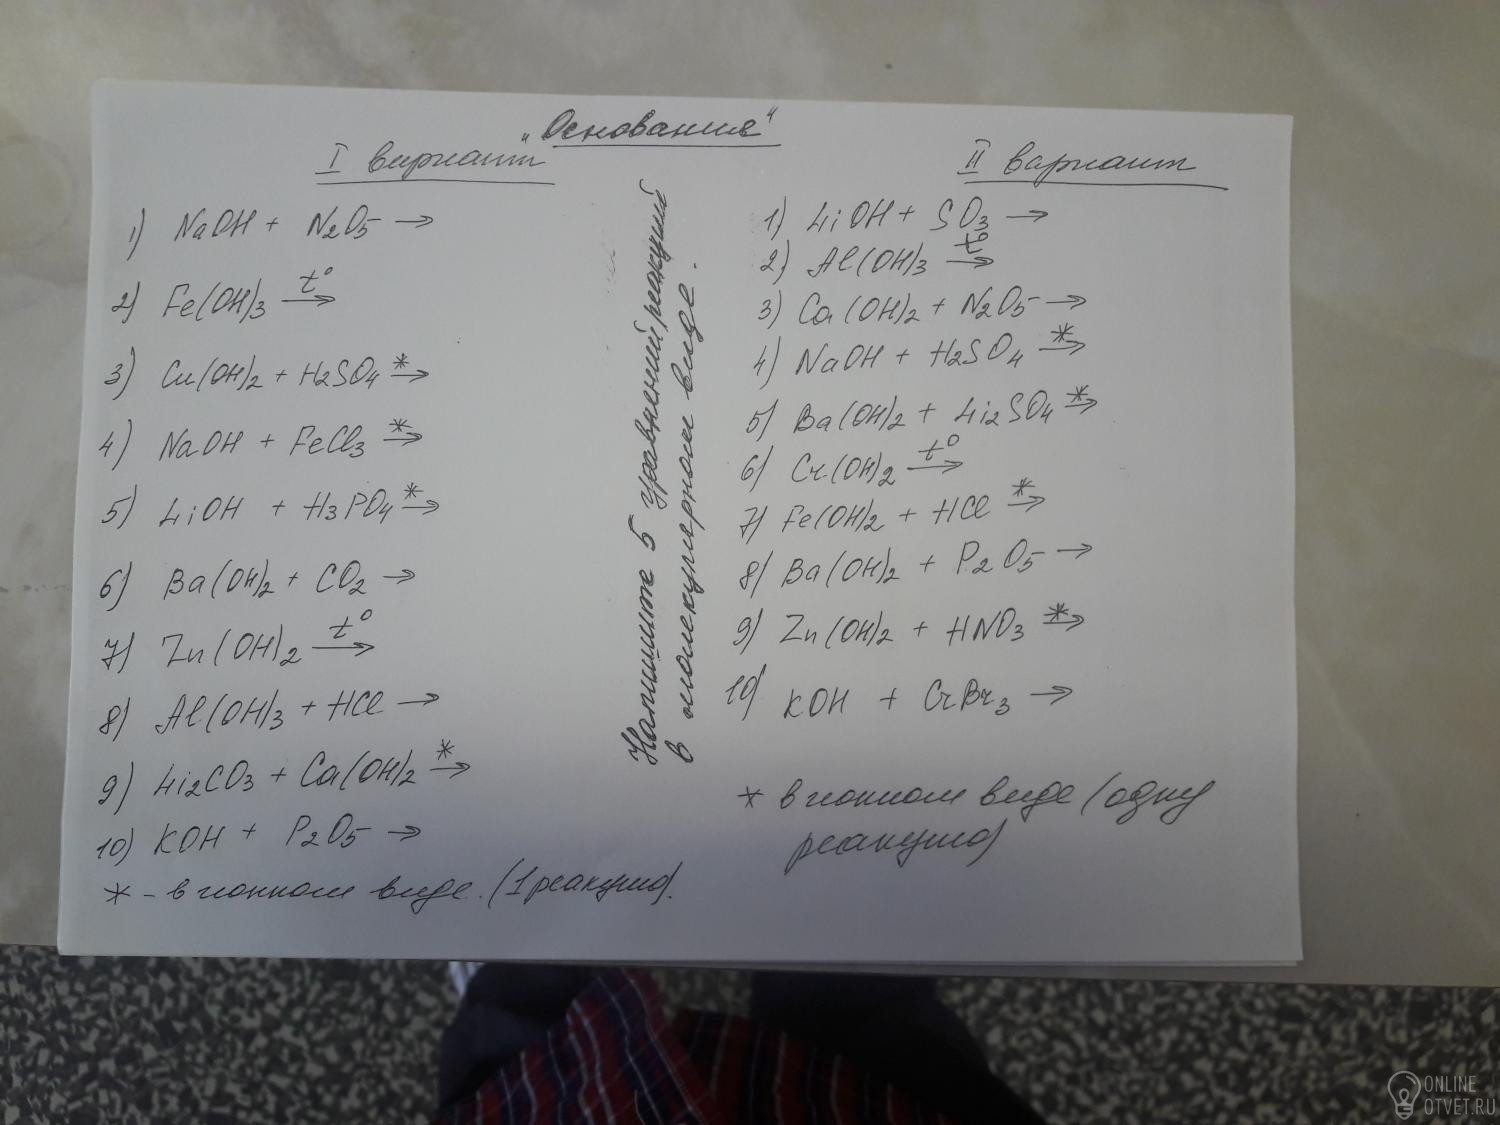 „Основания"
I вариант
1) NaOH + N2O5 →
2) Fe(OH)3 t° →
3) Cu(OH)2 + H2SO4 * →
4) NaOH + FeCl3 * →
5) LiOH + H3PO4 * →
6) Ba(OH)2 + CO2 →
7) Zn(OH)2 t° →
8) Al(OH)3 + HCl →
9) Li2CO3 + Ca(OH)2 * →
10) KOH + P2O5 →
* - в ионном виде. (1 реакцию).
Напишите 5 уравнений реакций
в молекулярном виде.
II вариант
1) LiOH + SO3 →
2) Al(OH)3 t° →
3) Ca(OH)2 + N2O5 →
4) NaOH + H2SO4 * →
5) Ba(OH)2 + Li2SO4 * →
6) Cr(OH)2 t° →
7) Fe(OH)2 + HCl * →
8) Ba(OH)2 + P2O5 →
9) Zn(OH)2 + HNO3 * →
10) KOH + CrBr3 →
* в ионном виде (одну
реакцию)
ONLINE
OTVET.RU